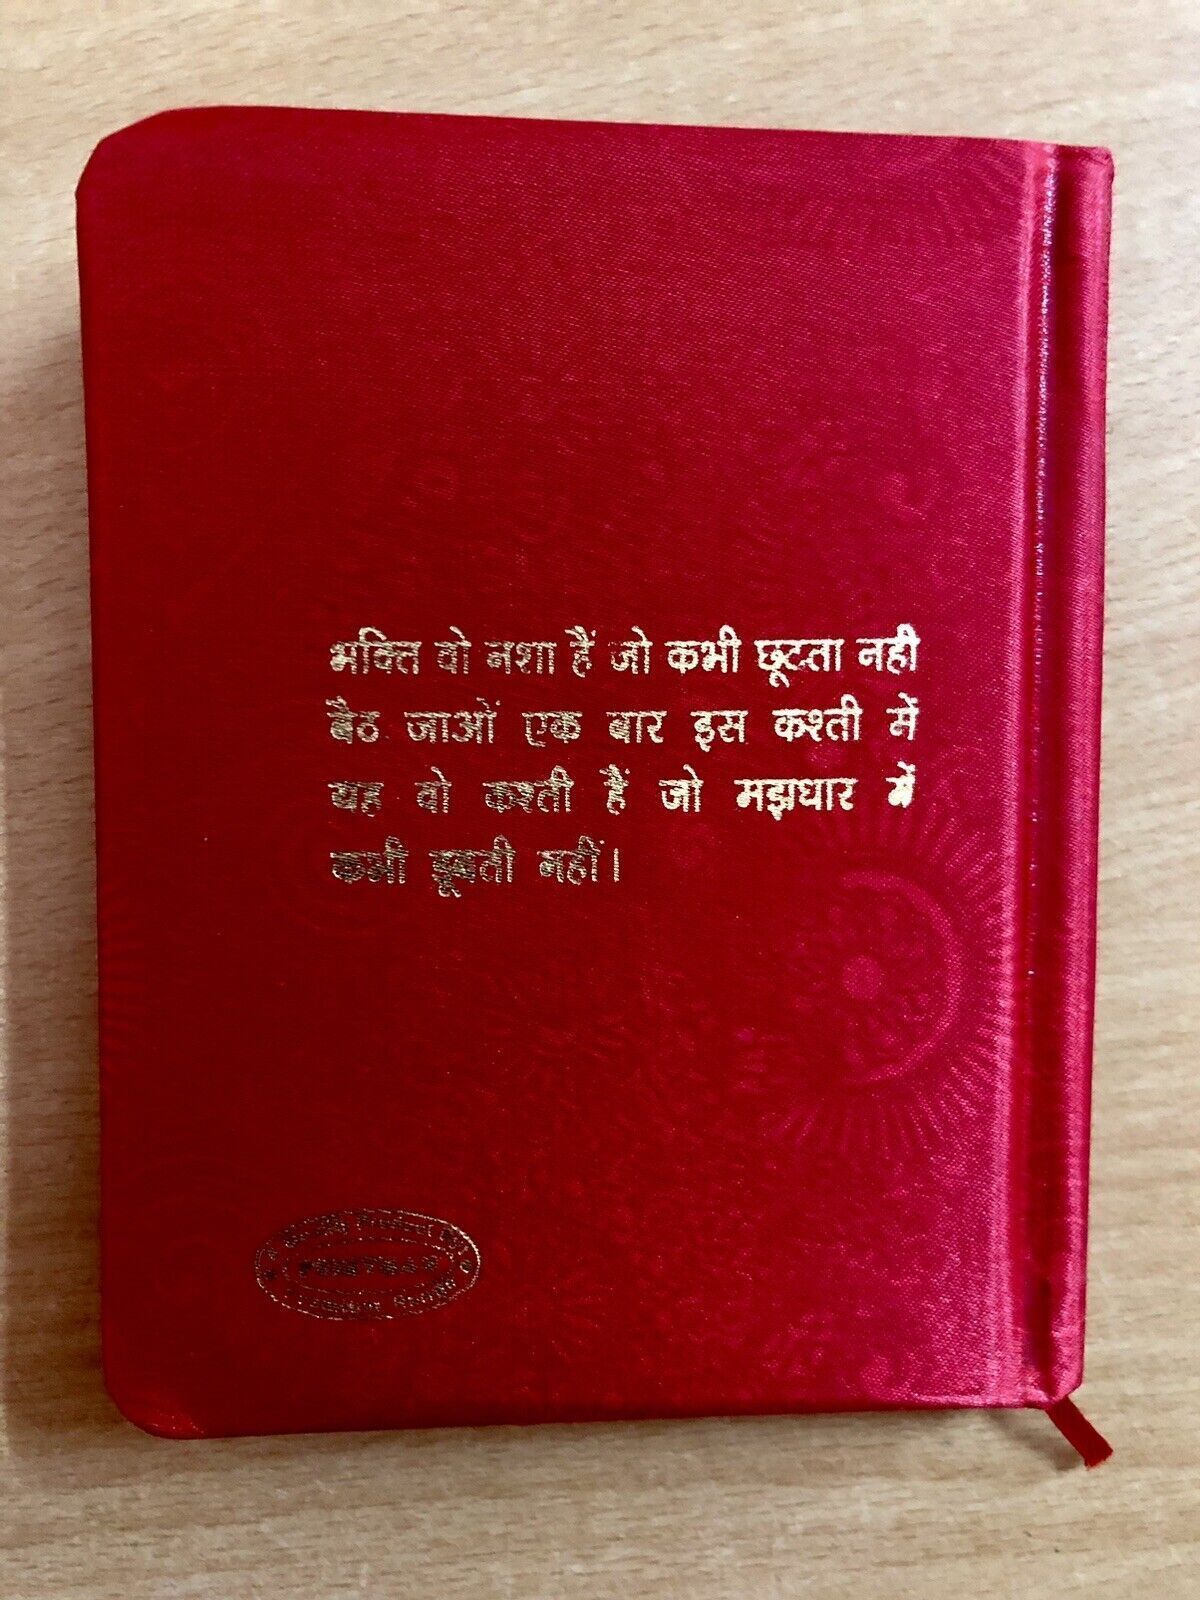 भक्ति वो नशा हैं जो कभी छूटता नही
बैठ जाओं एक बार इस कश्ती में
यह वो कश्ती हैं जो मझधार में
कभी डूबती नहीं।